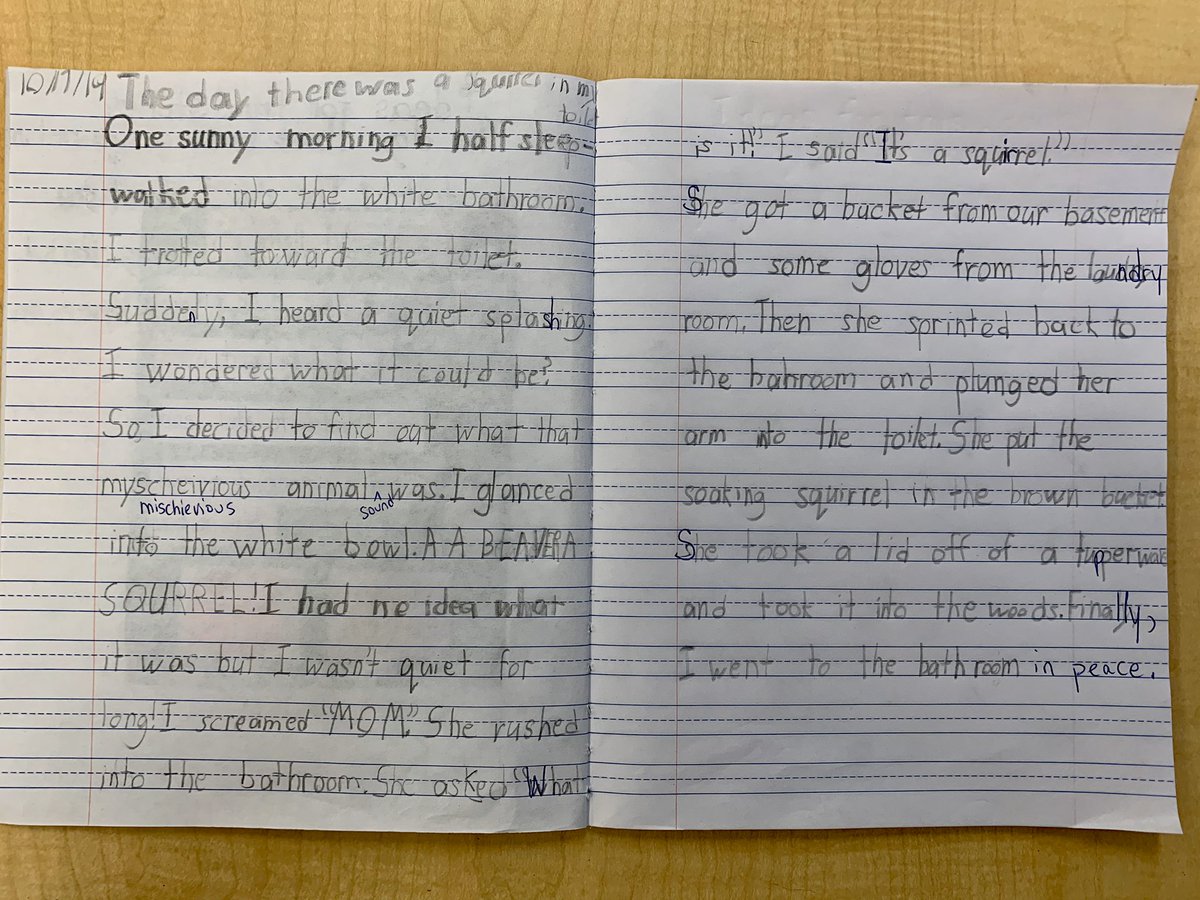 10/17/14 The day there was a squirrel in my
toilet
One sunny morning I half sleep-
walked into the white bathroom.
I trotted toward the toilet.
Suddenly, I heard a quiet splashing.
I wondered what it could be?
So I decided to find out what that
myscheivious animal was. I glanced
mischievious sound
into the white bowl. A A BEAVER A
SQURREL! I had no idea what
it was but I wasn't quiet for
long! I screamed "MOM." She rushed
into the bathroom. She asked "What
is it?" I said "It's a squirrel."
She got a bucket from our basement
and some gloves from the laundry
room. Then she sprinted back to
the bahroom and plunged her
arm into the toilet. She put the
soaking squirrel in the brown bucket.
She took a lid off of a tupperware
and took it into the woods. Finally,
I went to the bathroom in peace.